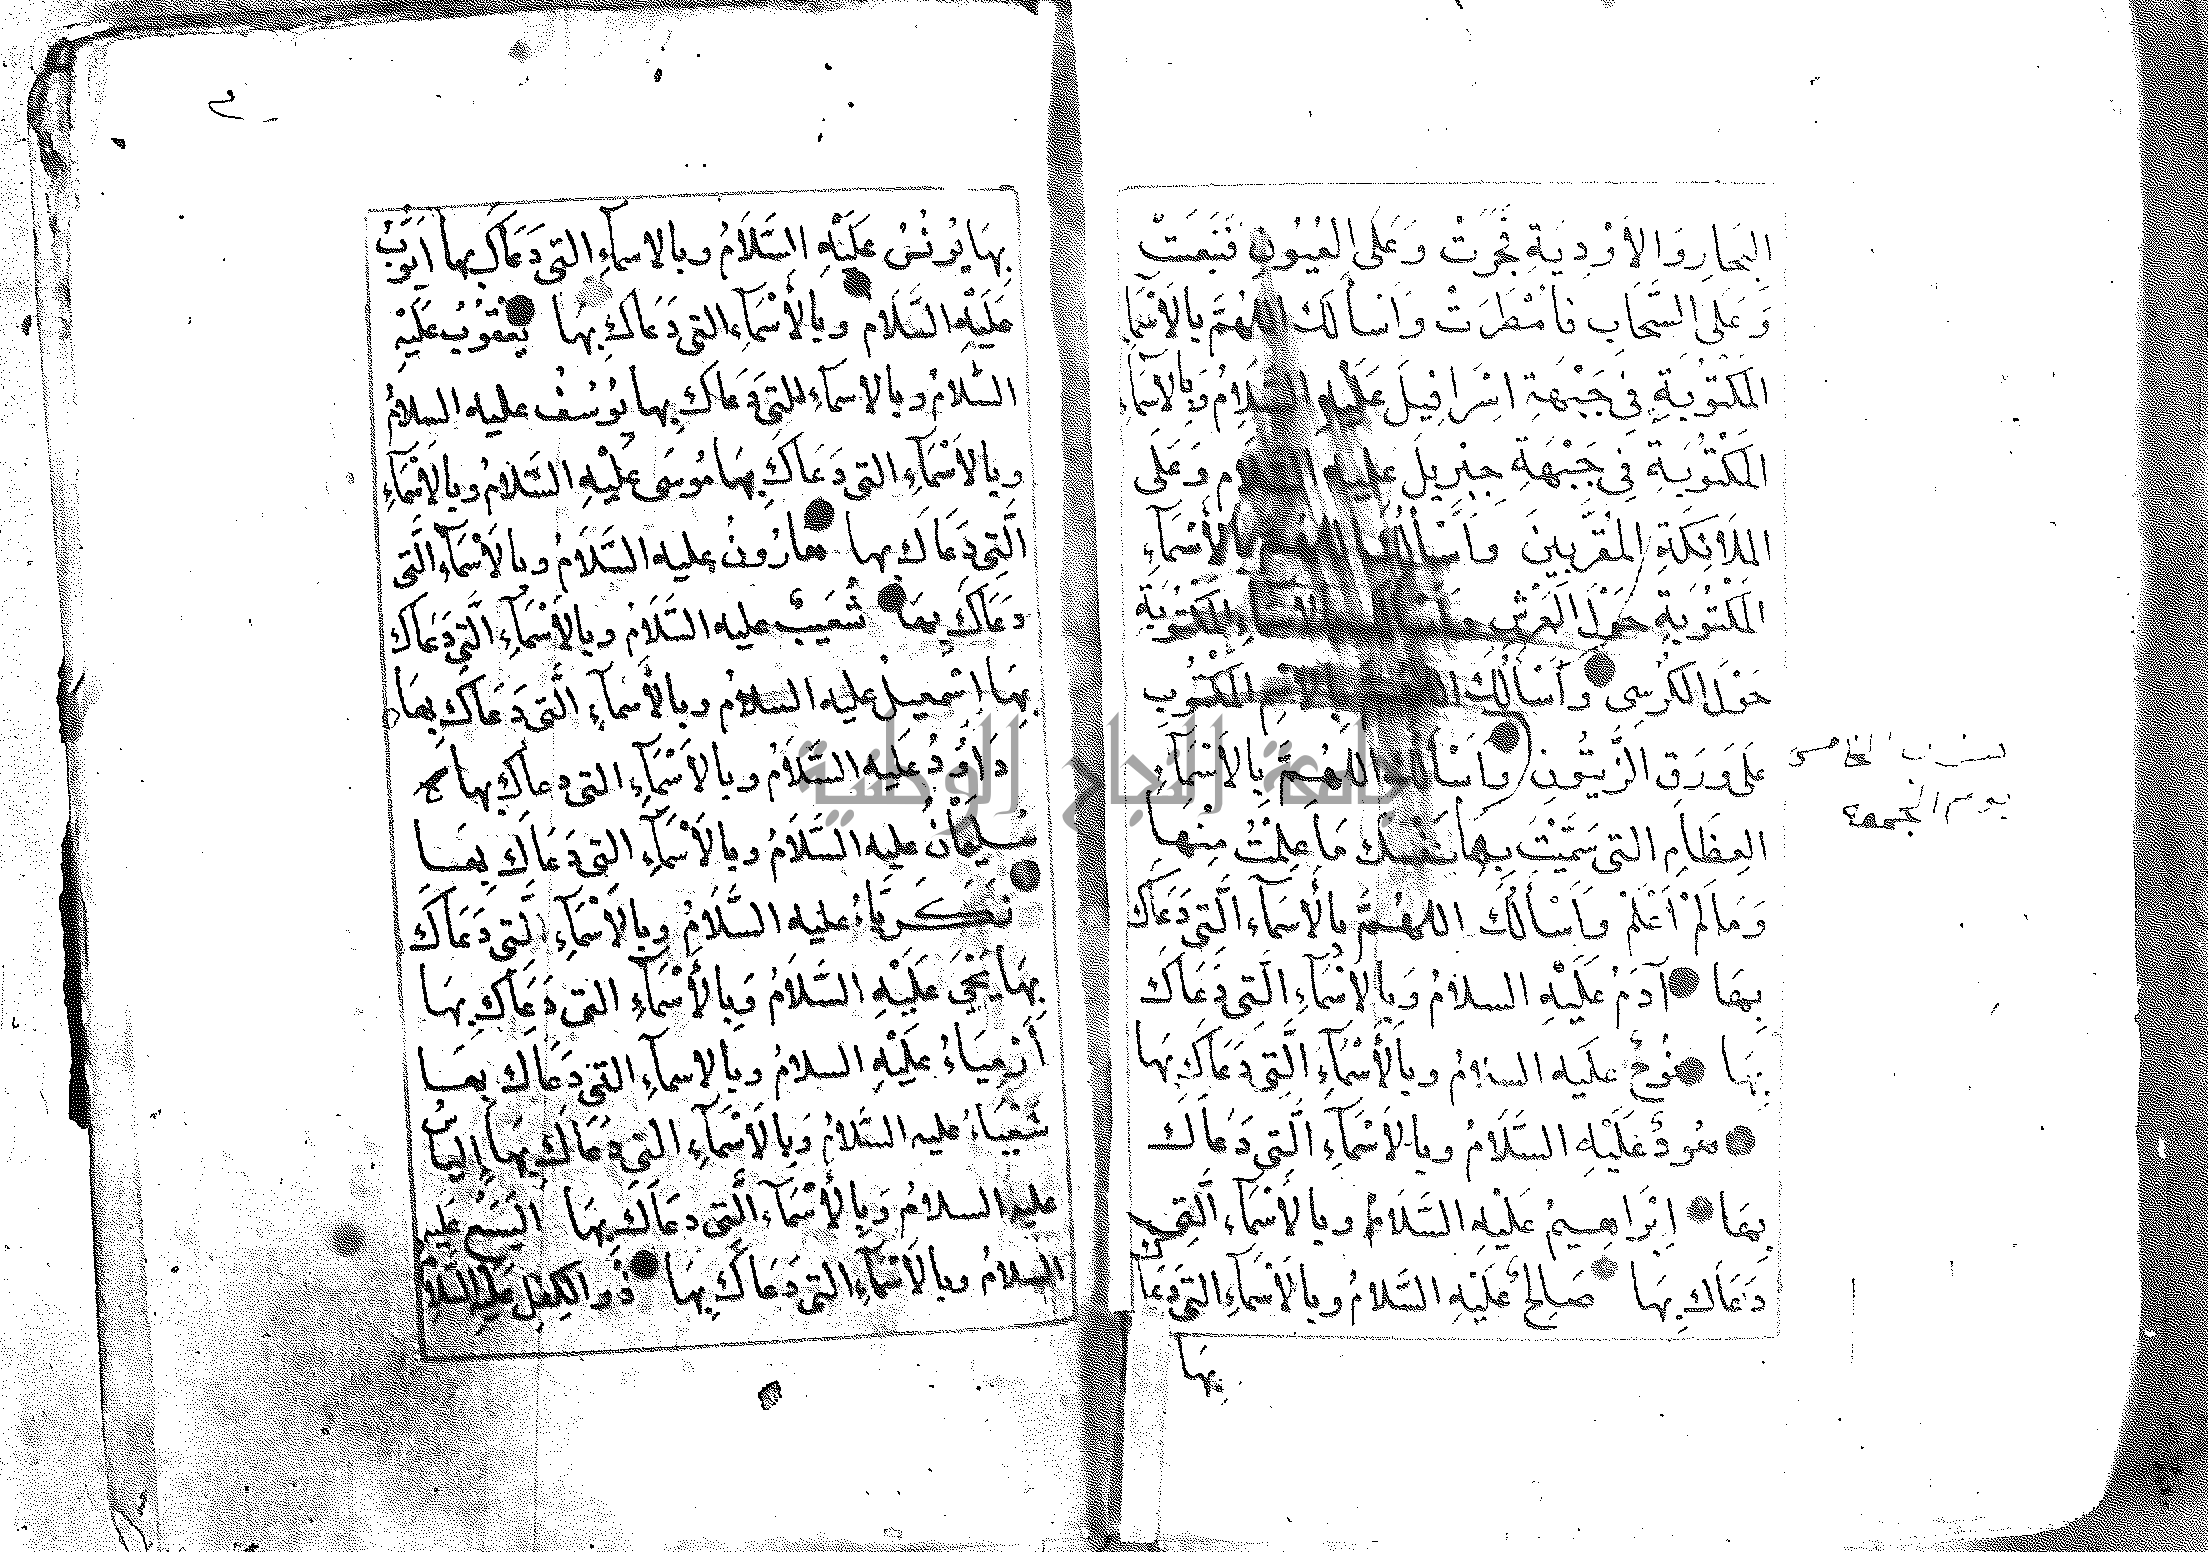 البحار والاودية فجرت وعلى العيون فنبعت
وَعَلى السَّحَابِ فَامْطَرَتْ وَاَسْأَلُكَ اللهُمَّ بِالاَسْمَاءِ
المَكْتُوبَةِ فِي جَبْهَةِ اِسْرَافِيلَ عَلَيهِ السَّلاَمُ وَبِالاَسْمَاءِ
المَكْتُوبَةِ فِي جَبْهَةِ جِبْرِيلَ عَليهِ السلام وَعَلَى
المَلاَئِكَةِ المُقَرَّبِينَ وَاَسْأَلُكَ اللهم بالأَسْمَآءِ
المَكْتُوبَةِ حَوْلَ العَرْشِ بالأسماءِ المَكْتُوبَةِ
حَوْلَ الكُرْسِى وَأَسْأَلُكَ بالاسْمِ المَكْتُوبِ
عَلى وَرَقِ الزَّيْتُونِ وَاَسْأَلُكَ اللهُمَّ بِالاَسْمَآءِ
العِظَامِ التى سَمَّيْتَ بِهَا نَفْسَكَ مَا عَلِمْتُ مِنْهَا
وَمَا لَمْ اَعْلَمْ وَاَسْأَلُكَ اللهُمَّ بِالأَسْمَآءِ الَّتِى دَعَاكَ
بِهَا آدَمُ عَلَيْهِ السلامُ وَبِالاَسْمَآءِ الَّتِى دَعَاكَ
بِهَا نُوحٌ عَلَيه السلامُ وبالأَسْمَآءِ الَّتِى دَعَاكَ بِهَا
هُودٌ عَلَيْهِ السَّلاَمُ وبالاَسْمَآءِ الَّتِى دَعَاكَ
بِهَا اِبْرَاهِيمُ عَلَيْهِ السَّلاَمُ وبالأَسْمَآءِ الَّتِى
دَعَاكَ بِهَا صَالِحٌ عَلَيْهِ السَّلامُ وبالاَسْمَآءِ التى دَعَاكَ
بِهَا
الخامس
يوم الجمعة
بِهَا يُونُسُ عَلَيْهِ السَّلاَمُ وبالاسمآءِ التى دَعَاكَ بِها اَيُّوبُ
عَلَيْهِ السَّلاَم وبالأَسْمَآءِ التى دَعَاكَ بِهَا يَعْقُوبُ عَلَيْهِ
السَّلامُ وبالاسمآءِ التى دَعَاكَ بِها يُوسُفُ عليه السلامُ
وبالأَسْمَآءِ التى دَعَاكَ بِهَا مُوسَى عَلَيْهِ السَّلامُ وبالاَسْمَآءِ
الَّتِى دَعَاكَ بِها هَارُونُ عليه السَّلاَمُ وبالاَسْمَآءِ الَّتى
دَعَاكَ بِهَا شُعَيبٌ عليه السَّلاَمُ وبالاَسْمَآءِ الَّتى دَعَاكَ
بِهَا اِسْمعيلُ عليه السلامُ وبالأَسمآءِ الَّتى دَعَاكَ بِهَا
دَاوُدُ عَلَيه السَّلاَمُ وبالاَسْمَآءِ التى دعاكَ بِها
سُلَيْمَانُ عليه السَّلاَمُ وبالاَسْمَآءِ التى دَعَاكَ بِهَا
زَكَرِيَّاءُ عليه السَّلاَمُ وبالاَسْمَآءِ الَّتِى دَعَاكَ
بِهَا يَحْيَى عَلَيْهِ السَّلاَمُ وَبِالأَسْمَآءِ التى دَعَاكَ بِهَا
أَرْمِيَاءُ عَلَيْهِ السلامُ وبالاسمآءِ التى دَعَاكَ بِهَا
شَعْيَاءُ عليه السَّلامُ وَبِالاَسْمَآءِ التى دَعَاكَ بِهَا اِلياسُ
عليه السلامُ وَبِالأَسْمَآءِ الَّتى دَعَاكَ بِهَا اليَسَعُ عَلَيهِ
السلامُ وبالاَسْمَآءِ التى دَعَاكَ بِهَا ذُو الكِفْلِ عليه السلام
جامعة النجاح الوطنية